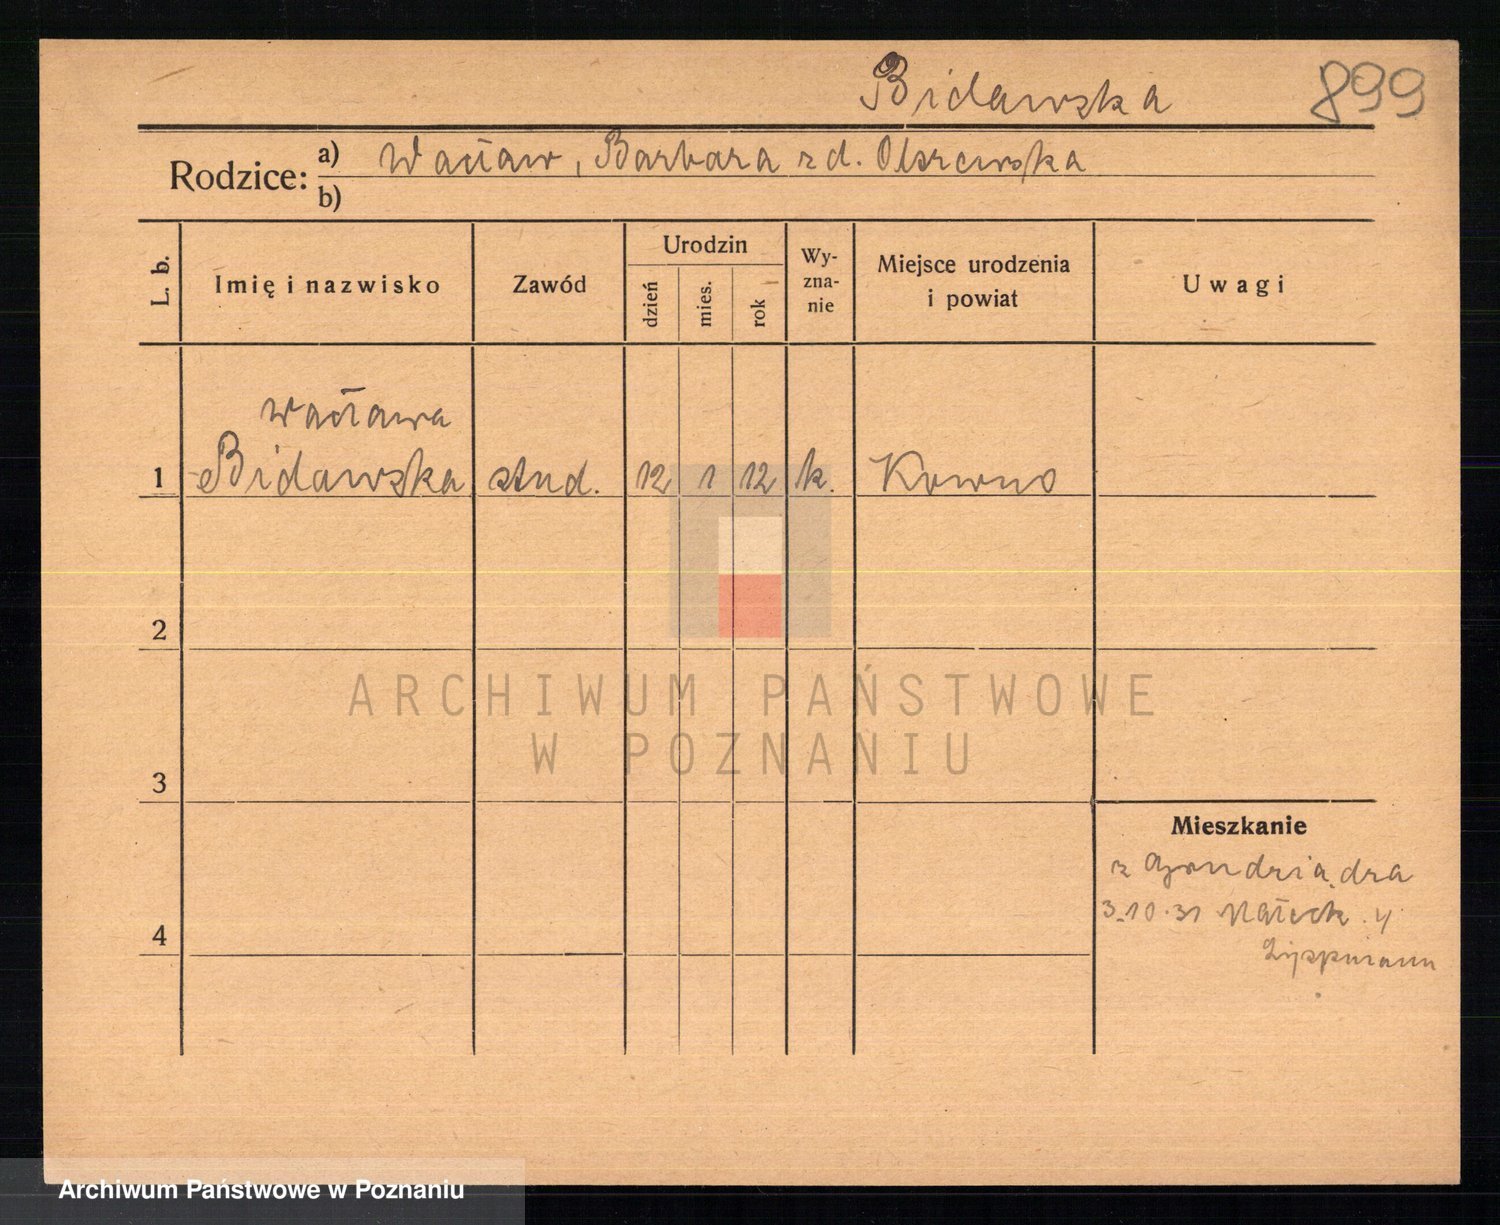 Bidawska 899
Rodzice: a) Wacław, Barbara zd. Olszewska
b)
L. b. Imię i nazwisko Zawód Urodzin dzień mies. rok Wy-zna-nie Miejsce urodzenia i powiat Uwagi
Wacława
1 Bidawska stud. 12 1 12 k. Kowno
2
ARCHIWUM PAŃSTWOWE
W POZNANIU
3
Mieszkanie
z
3.10.31 Małeck. 4
4
Lippmann
Archiwum Państwowe w Poznaniu